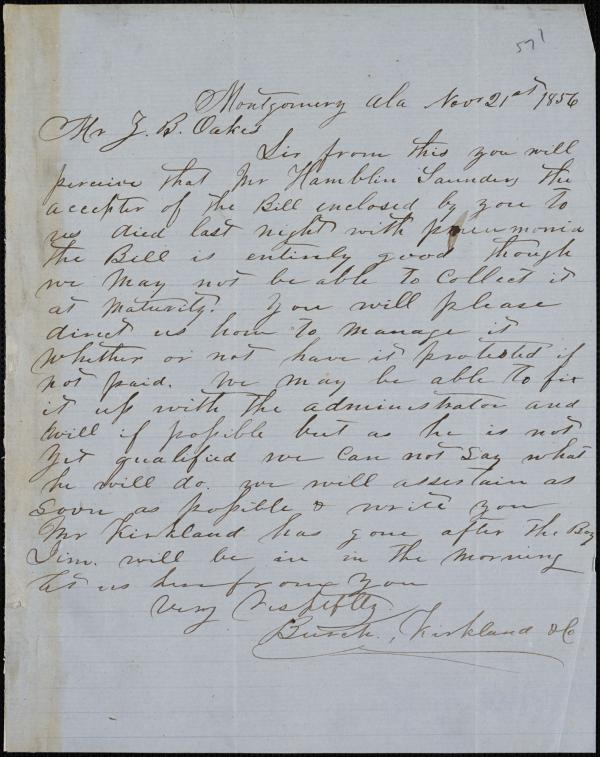 571
Montgomery Ala Nov 21st 1856
Mr Z. B. Oakes
Sir from this you will
perceive that Mr Hamblin Saunders the
accepter of the Bill enclosed by you to
us died last night with pneumonia
the Bill is entirely good though
we may not be able to collect it
at maturity. You will please
direct us how to manage it
whether or not have it protested if
not paid. We may be able to fix
it up with the administrator and
will if possible but as he is not
yet qualified we can not say what
he will do. we will assertain as
soon as possible & write you
Mr Kirkland has gone after the Boy
Jim. will be in in the morning
let us hear from you
Very Respectfully
Burch, Kirkland & Co